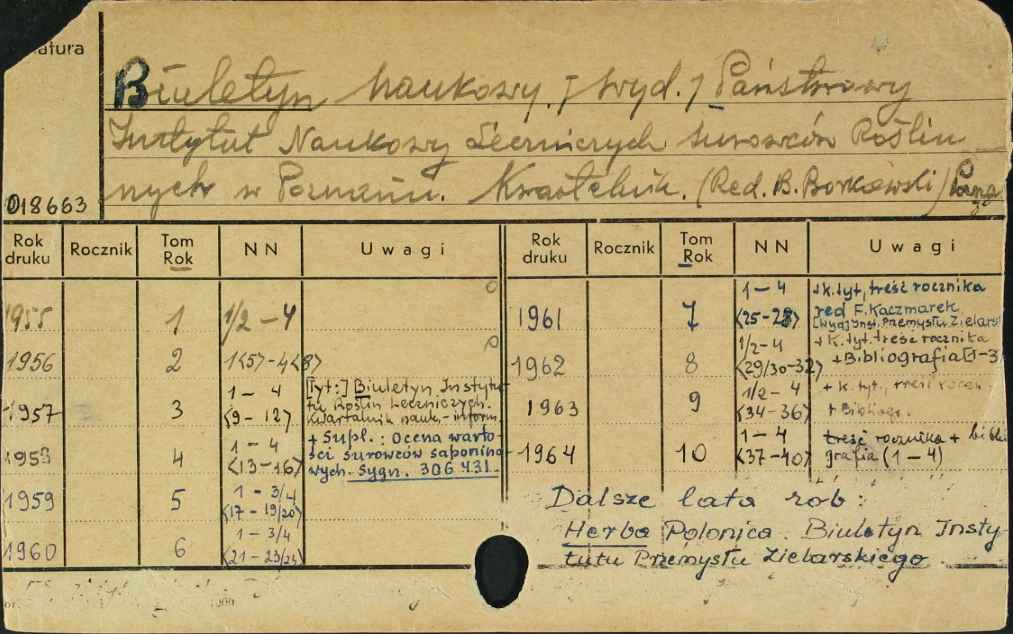 atura
Biuletyn Naukowy. [wyd.] Państwowy
Instytut Naukowy Leczniczych Surowców Roślin
nych w Poznaniu. Kwartalnik. (Red. B. Borkowski)
018663
Rok druku Rocznik Tom Rok NN Uwagi
1955 1 1/2-4
1956 2 1<57-4<8>
1957 3 1-4 <9-12> [Tyt:] Biuletyn Instytu-
tu Roślin Leczniczych.
Kwartalnik nauk.-inform.
1958 4 1-4 <13-16> + Supl.: Ocena warto-
ści surowców saponino
wych. Sygn. 306431.
1959 5 1-3/4 <17-19/20>
1960 6 1-3/4 <21-23/24>
Rok druku Rocznik Tom Rok NN Uwagi
1961 7 1-4 <25-28> +k.tyt, treść rocznika
red F. Kaczmarek
[Wyd] Inst. Przemysłu Zielars
1962 8 1/2-4 <29/30-32> + k.tyt. treść rocznika
+Bibliografia [1-3]
1963 9 1/2-4 <34-36> + k.tyt., treść roczn.
+ Bibliogr.
1964 10 1-4 <37-40> treść rocznika + biblio
grafia (1-4)
Dalsze lata rob:
Herba Polonica. Biuletyn Insty-
tutu Przemysłu Zielarskiego